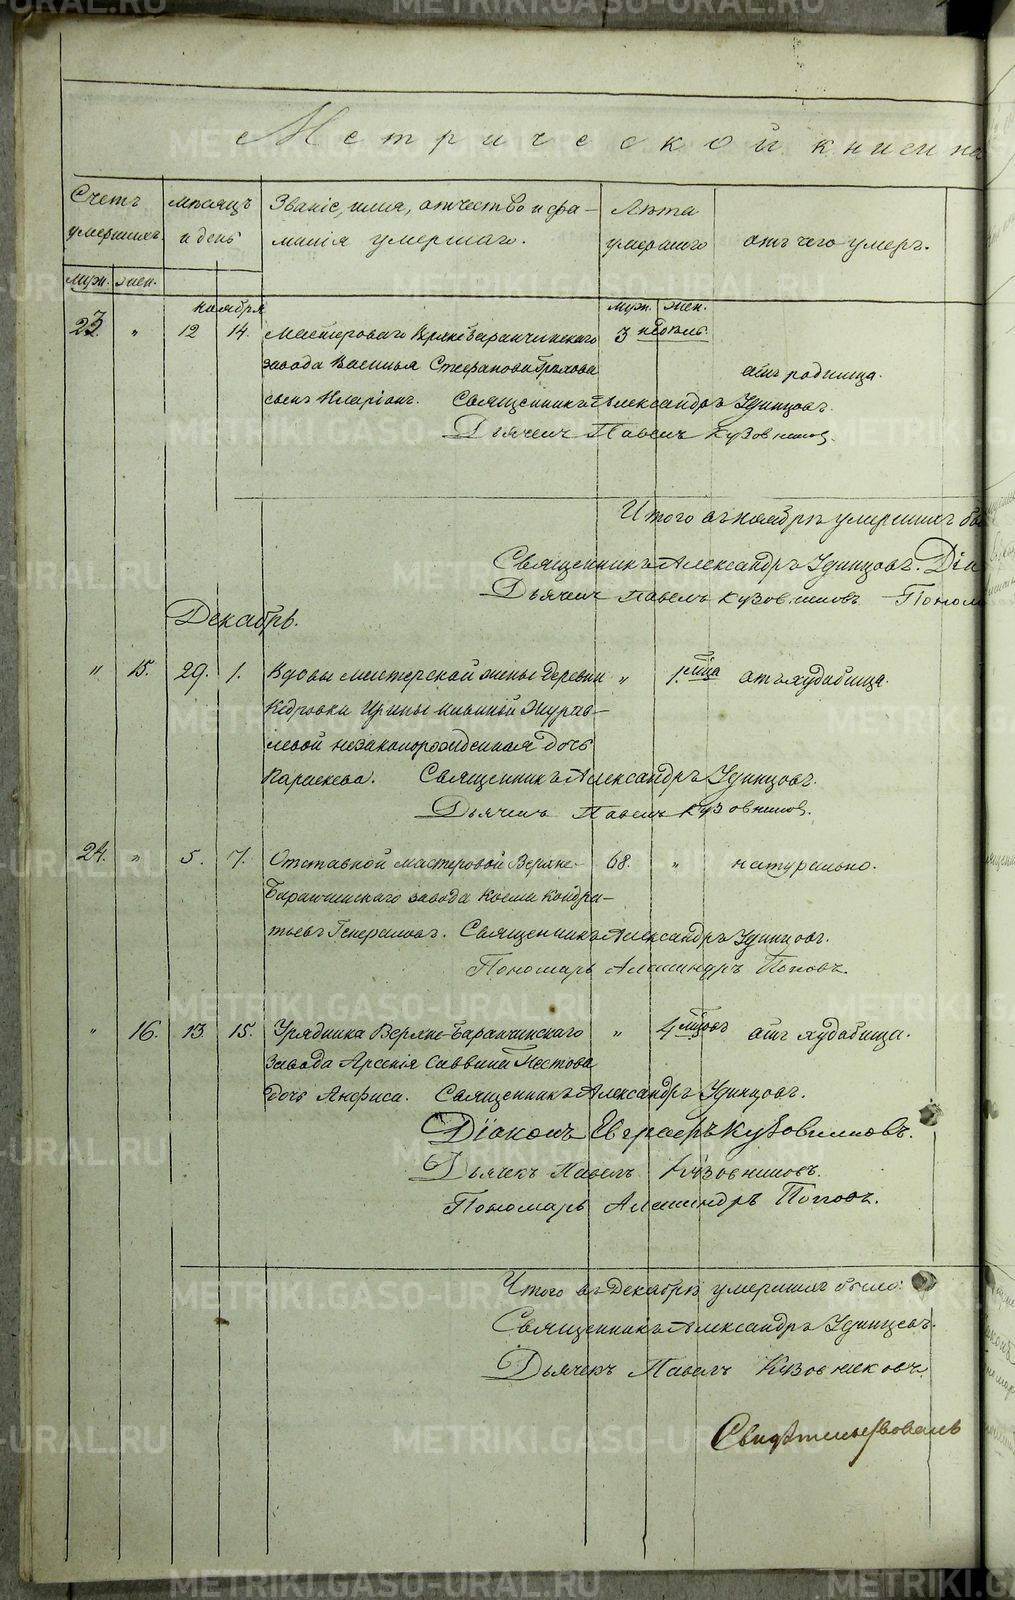 Метрической книги на
Счетъ умершихъ
мѣсяцъ и день
Званіе, имя, отчество и фамилія умершаго.
Лѣта умершаго
отъ чего умеръ.
муж. жен.
ноября
муж. жен.
23. " 12 14. Мастероваго Верхнебаранчинскаго 3 недѣль
завода Василья Стефанова сынъ Иларіонъ. отъ родимца.
Священникъ Александръ Удинцовъ.
Дьячекъ Павелъ Кузовниковъ.
Итого въ ноябрѣ умершихъ
Священникъ Александръ Удинцовъ.
Дьячекъ Павелъ Кузовниковъ
Декабрь.
" 15. 29. 1. Вдовы мастерской жены деревни " 1. мца отъ худобища.
Кедровки Ирины Журавлевой незаконорожденная дочь
Параскева. Священникъ Александръ Удинцовъ.
Дьячекъ Павелъ Кузовниковъ.
24. " 5. 7. Отставной мастеровой Верхне- 68. " натурально.
Баранчинскаго завода Косма Кондра-
тьевъ Генераловъ. Священникъ Александръ Удинцовъ.
Пономарь Александръ Поповъ.
" 16. 13. 15. Урядника Верхне-Баранчинскаго " 4 мцовъ отъ худобища.
Завода Арсенія Саввина
Дочь Анфиса. Священникъ Александръ Удинцовъ.
Діаконъ Кузовниковъ.
Дьячекъ Павелъ Кузовниковъ.
Пономарь Александръ Поповъ.
Итого въ Декабрѣ умершихъ было:
Священникъ Александръ Удинцовъ.
Дьячекъ Павелъ Кузовниковъ
Свидѣтельствовалъ
METRIKI.GASO-URAL.RU